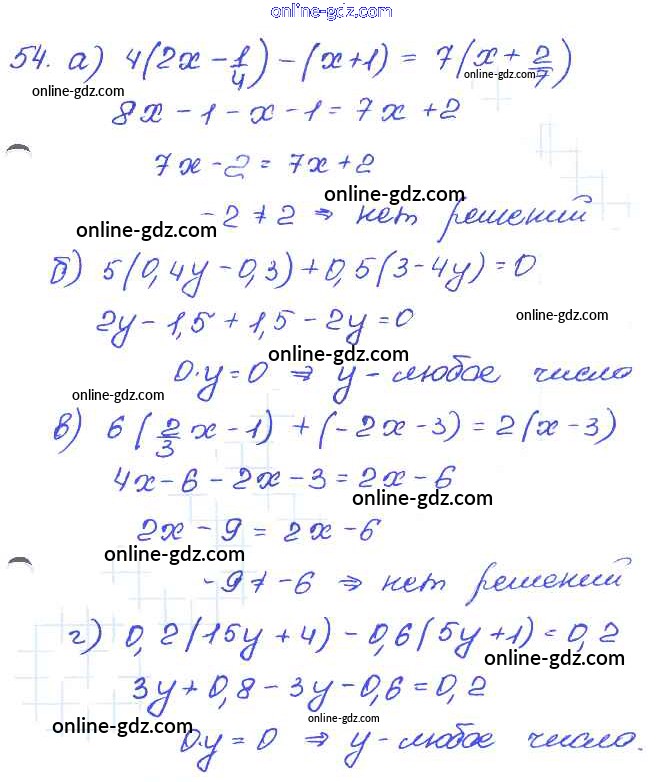 online-gdz.com
54. а) 4(2x - 1/4) - (x+1) = 7(x + 2/7)
online-gdz.com
online-gdz.com
8x - 1 - x - 1 = 7x + 2
online-gdz.com
7x - 2 = 7x + 2
online-gdz.com
-2 ≠ 2 ⇒ нет решений
online-gdz.com
б) 5(0,4y - 0,3) + 0,5(3 - 4y) = 0
2y - 1,5 + 1,5 - 2y = 0
online-gdz.com
online-gdz.com
0·y = 0 ⇒ y - любое число
online-gdz.com
в) 6(2/3 x - 1) + (-2x - 3) = 2(x - 3)
4x - 6 - 2x - 3 = 2x - 6
online-gdz.com
2x - 9 = 2x - 6
online-gdz.com
-9 ≠ -6 ⇒ нет решений
г) 0,2(15y + 4) - 0,6(5y + 1) = 0,2
online-gdz.com
3y + 0,8 - 3y - 0,6 = 0,2
online-gdz.com
online-gdz.com
0·y = 0 ⇒ y - любое число.